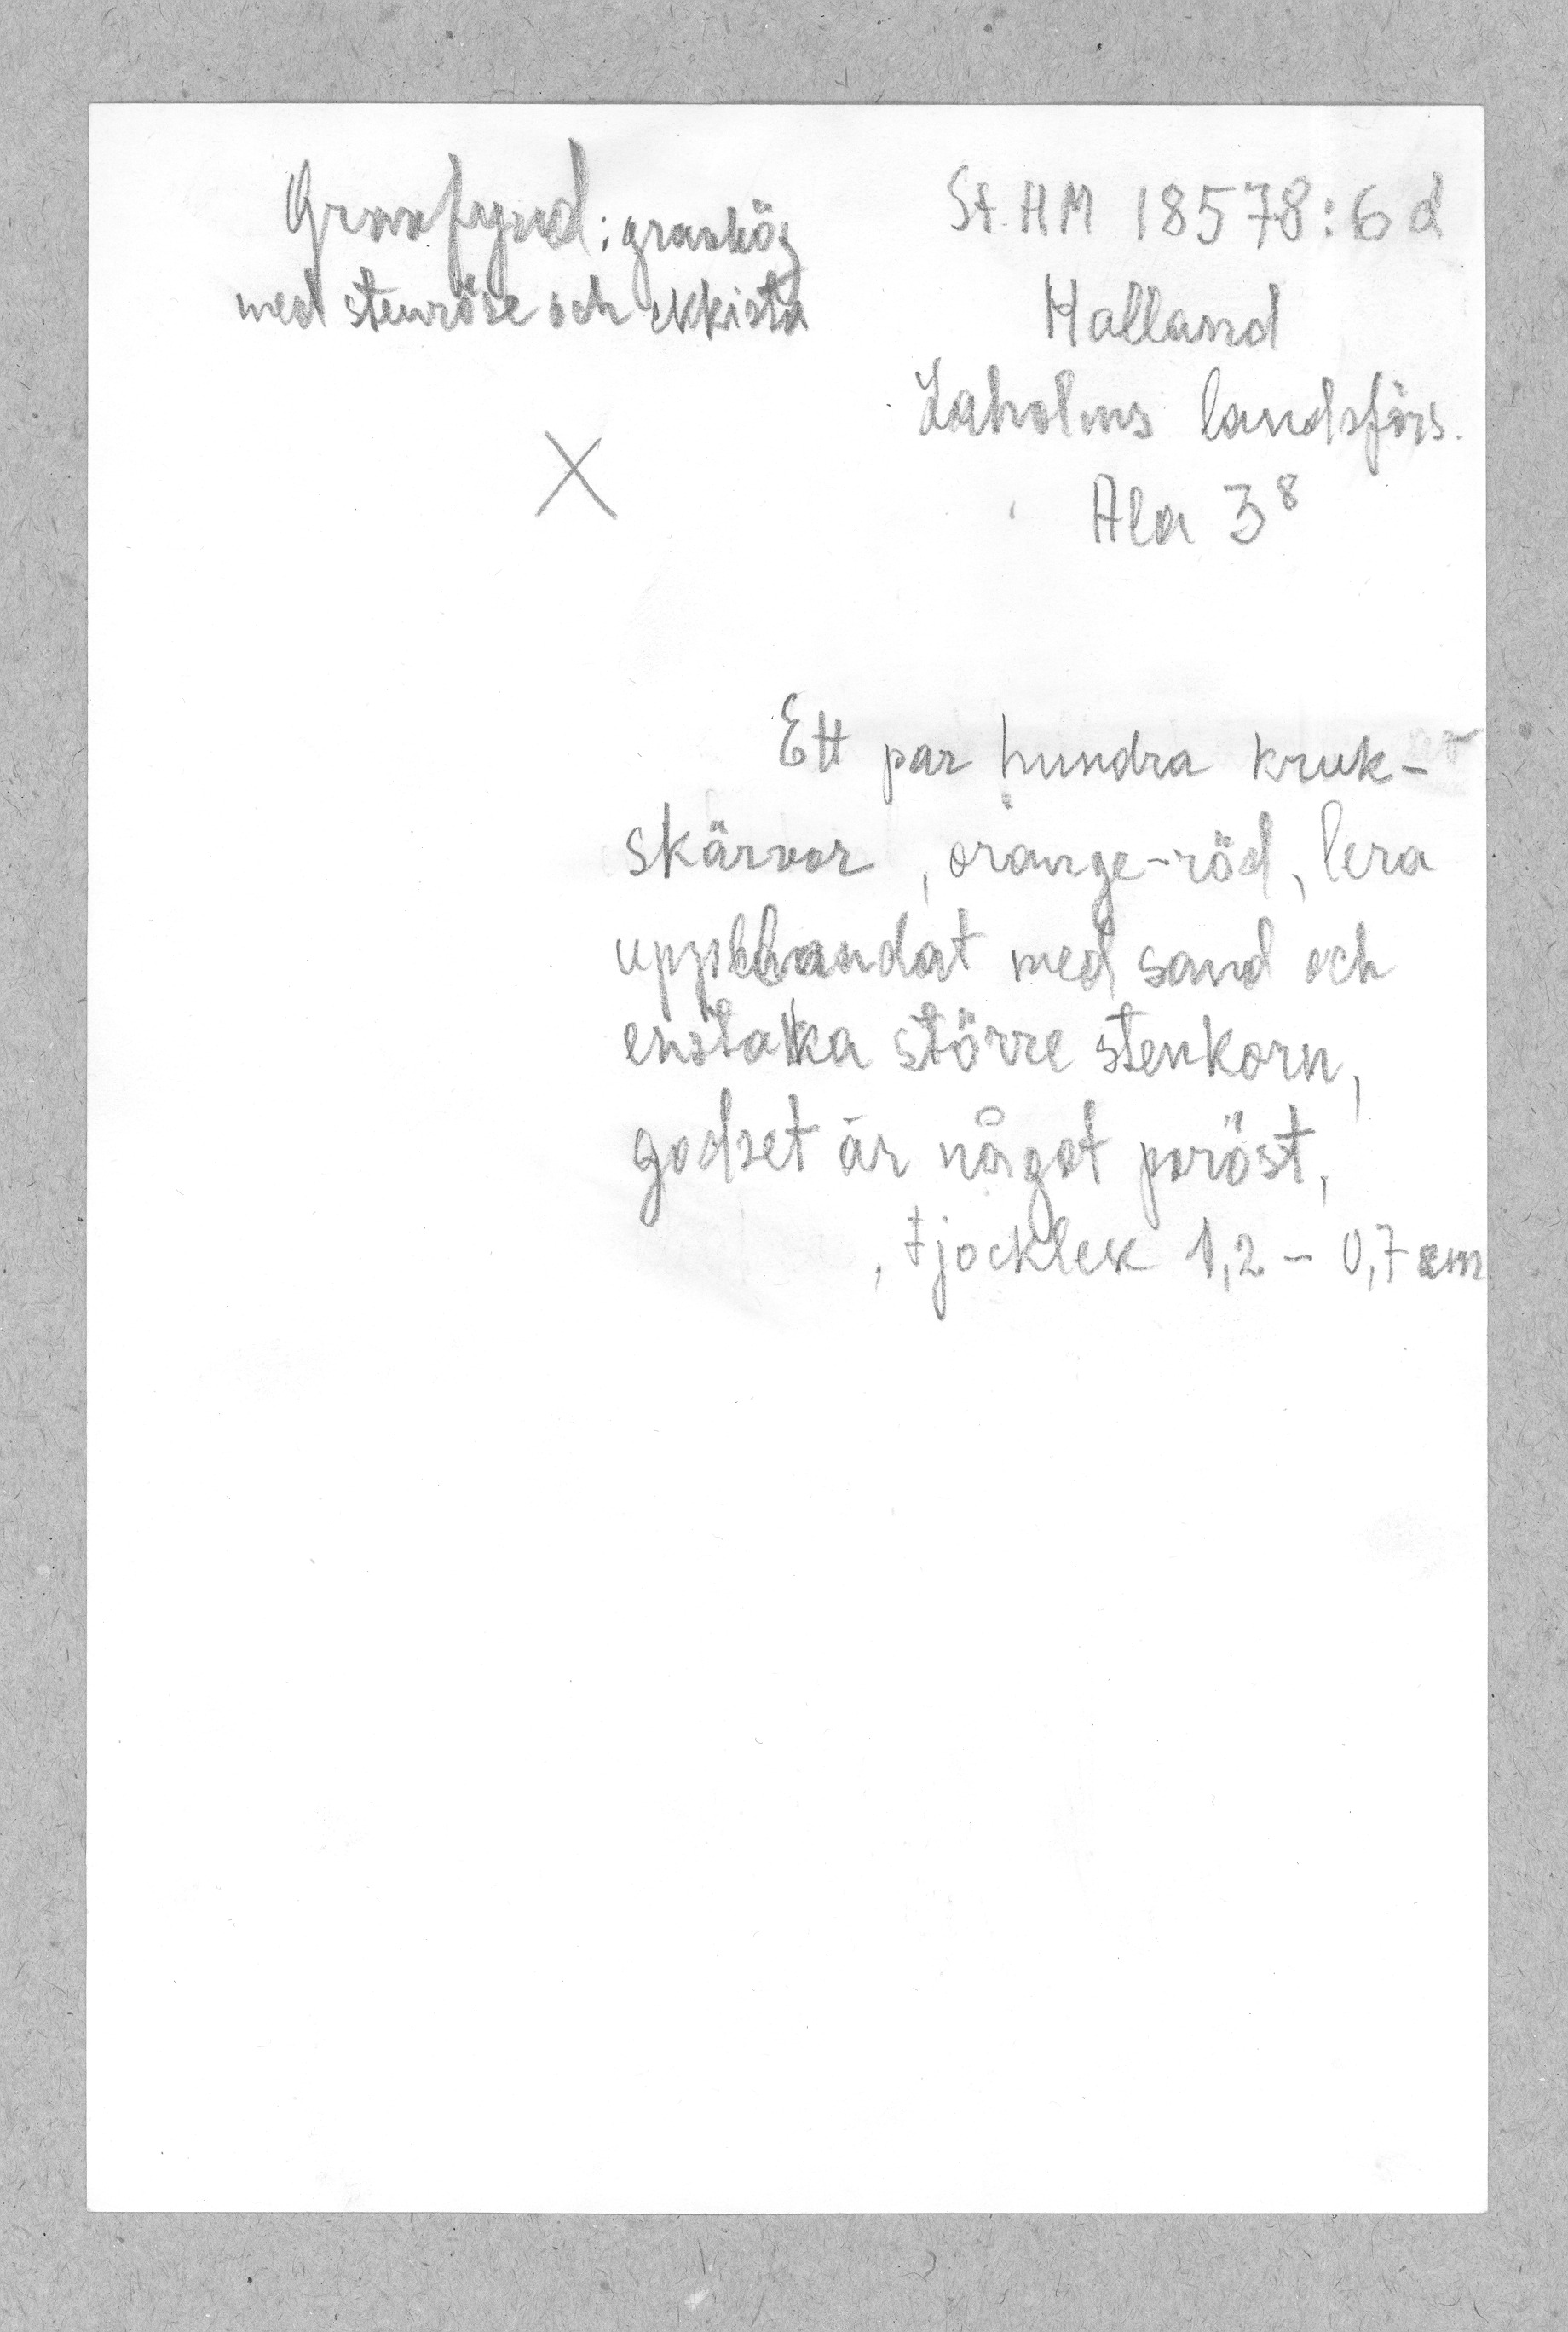 Gravfynd: gravhög
med stenröse och ekkista
X
St. HM 18578:6d
Halland
Laholms landsförs.
Ala 3⁸
Ett par hundra kruk-
skärvor, orange-röd, lera
uppblandat med sand och
enstaka större stenkorn,
godset är något poröst,
, tjocklek 1,2 - 0,7 cm